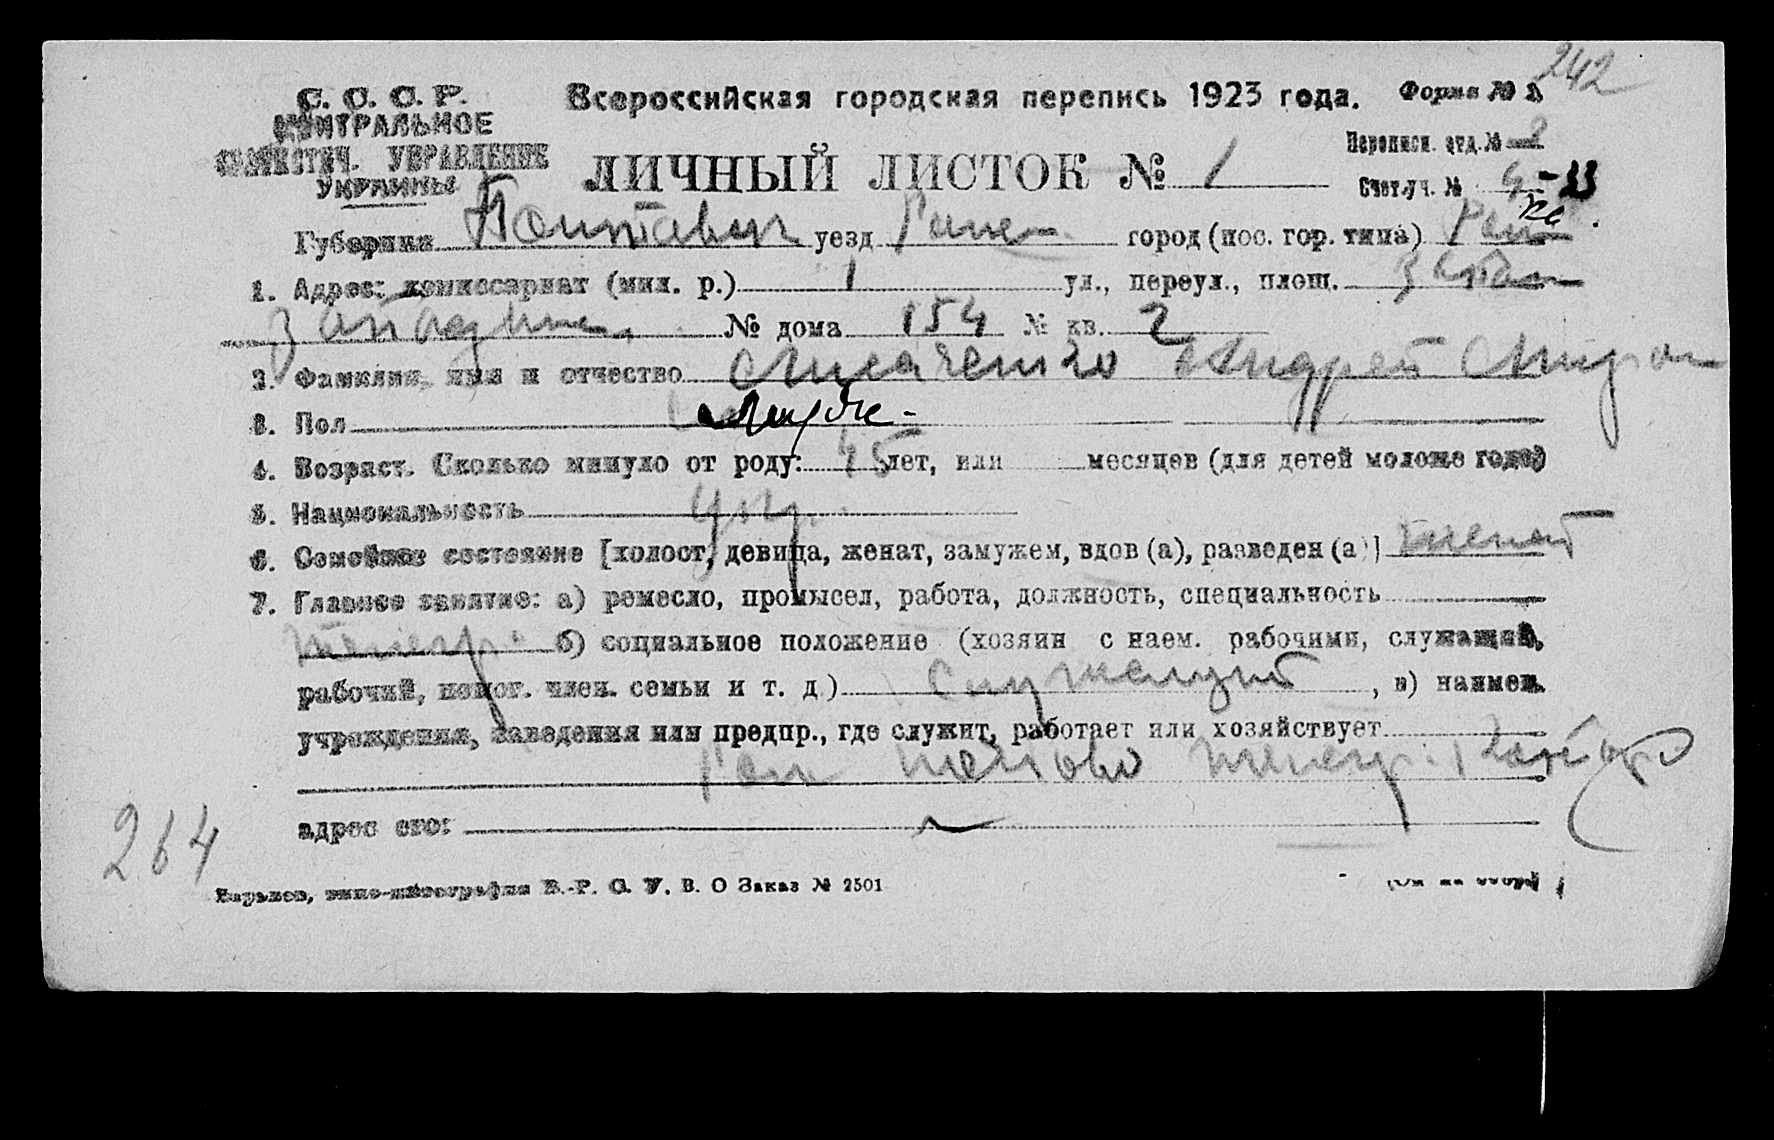 242
С. С. С. Р.
ЦЕНТРАЛЬНОЕ
СТАТИСТИЧ. УПРАВЛЕНИЕ
УКРАИНЫ
Всероссийская городская перепись 1923 года. Форма № 1
Переписн. отд. № 2
ЛИЧНЫЙ ЛИСТОК № 1
Счет.уч. № 4-33
Губерния Полтавск уезд Ромен город (пос. гор. типа) Ром
1. Адрес: комиссариат (мил. р.) 1 ул., переул., площ.
№ дома 154 № кв. 2
2. Фамилия, имя и отчество Андрей Мирон
3. Пол Мужс-
4. Возраст. Сколько минуло от роду: 45 лет, или месяцев (для детей моложе года)
5. Национальность Укр.
6. Семейное состояние [холост, девица, женат, замужем, вдов (а), разведен (а)] женат
7. Главное занятие: а) ремесло, промысел, работа, должность, специальность
телегр. б) социальное положение (хозяин с наем. рабочими, служащий,
рабочий, помог. член. семьи и т. д.) Служащий, в) наимен.
учреждения, заведения или предпр., где служит, работает или хозяйствует
Ром телегр.
адрес его:
264
Харьков, типо-литография В.-Р. С. У. В. О Заказ № 2501